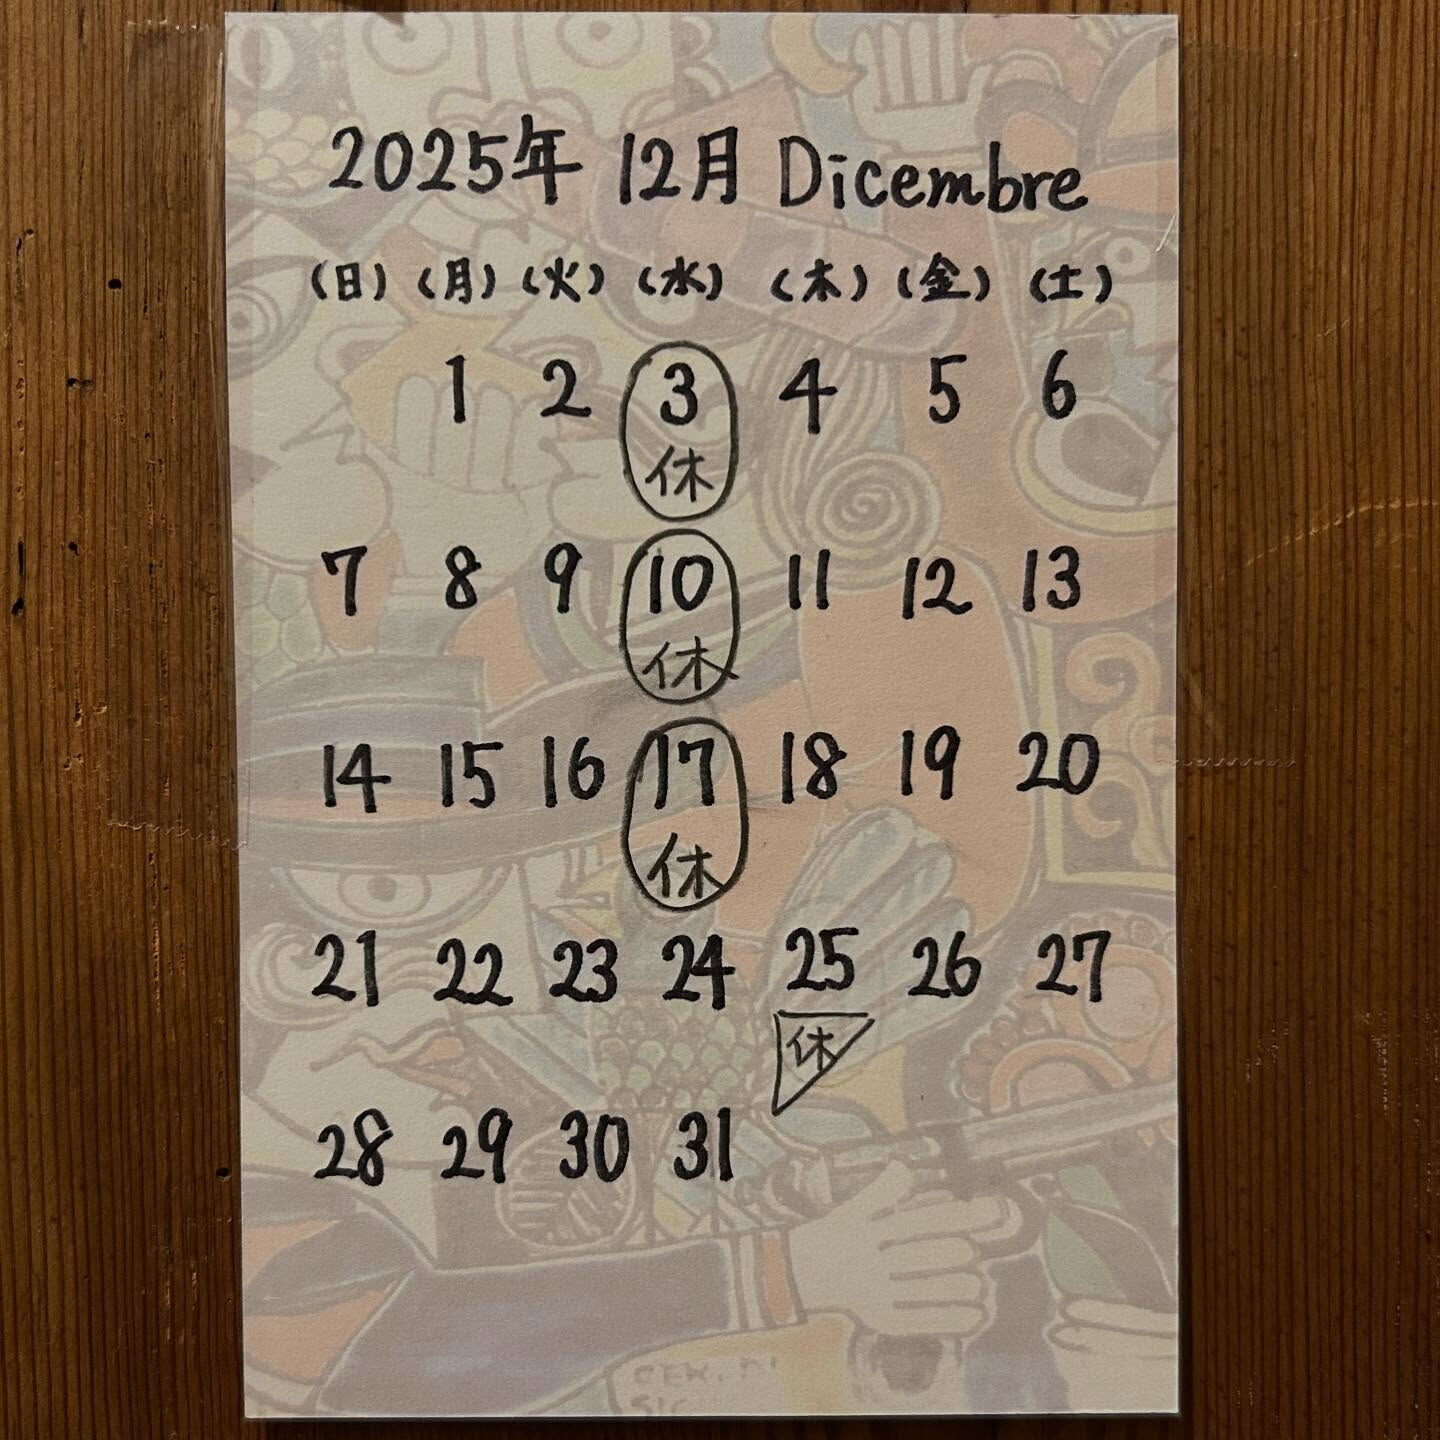 2025年 12月 Dicembre
(日) (月) (火) (水) (木) (金) (土)
1 2 3 4 5 6
休
7 8 9 10 11 12 13
休
14 15 16 17 18 19 20
休
21 22 23 24 25 26 27
休
28 29 30 31